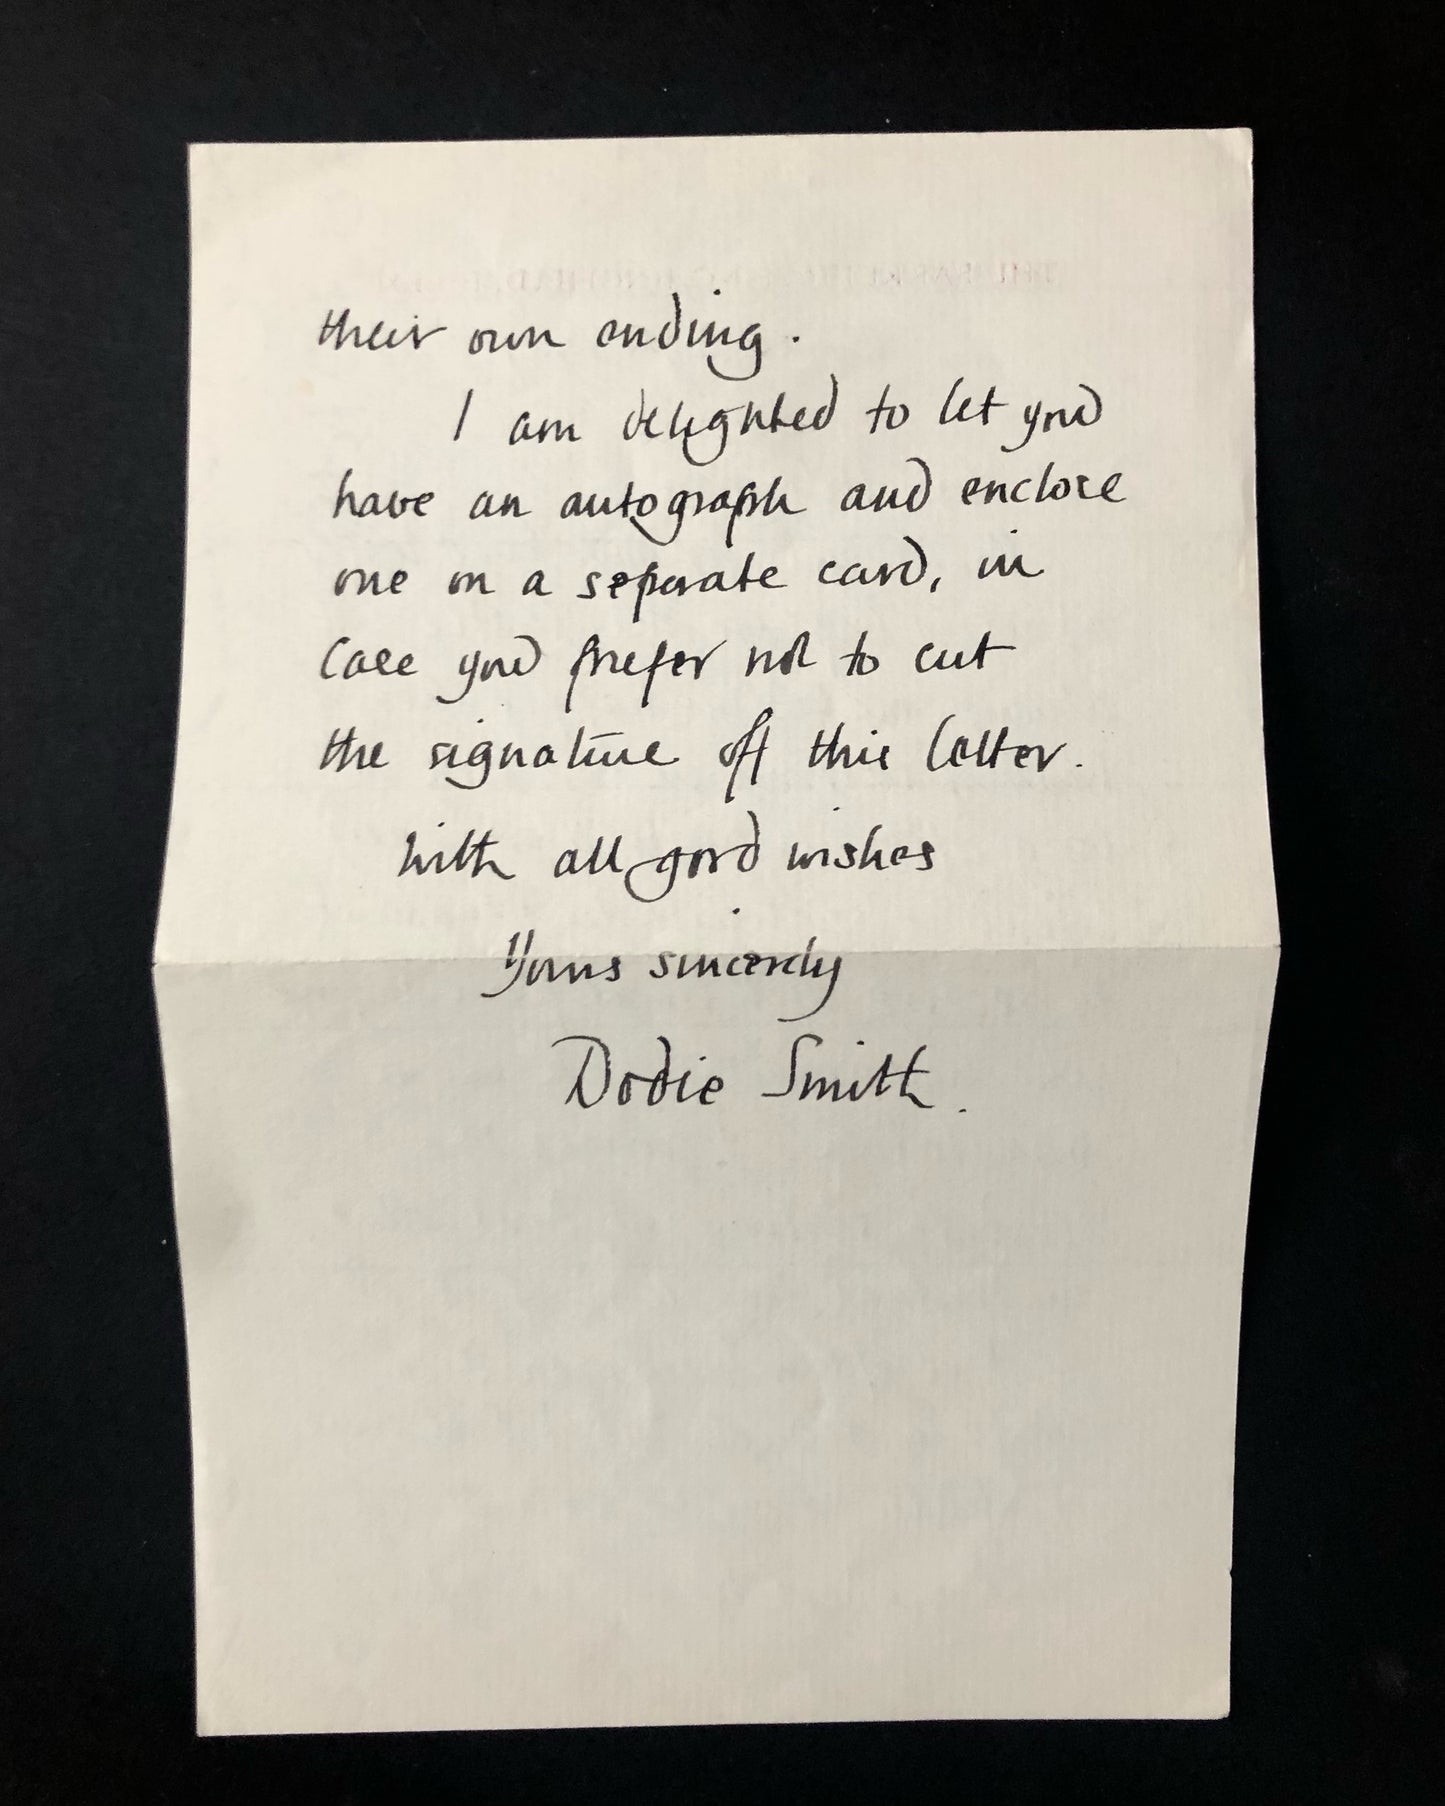 their own ending.
I am delighted to let you
have an autograph and enclose
one on a separate card, in
case you prefer not to cut
the signature off this letter.
With all good wishes
Yours sincerely
Dodie Smith.